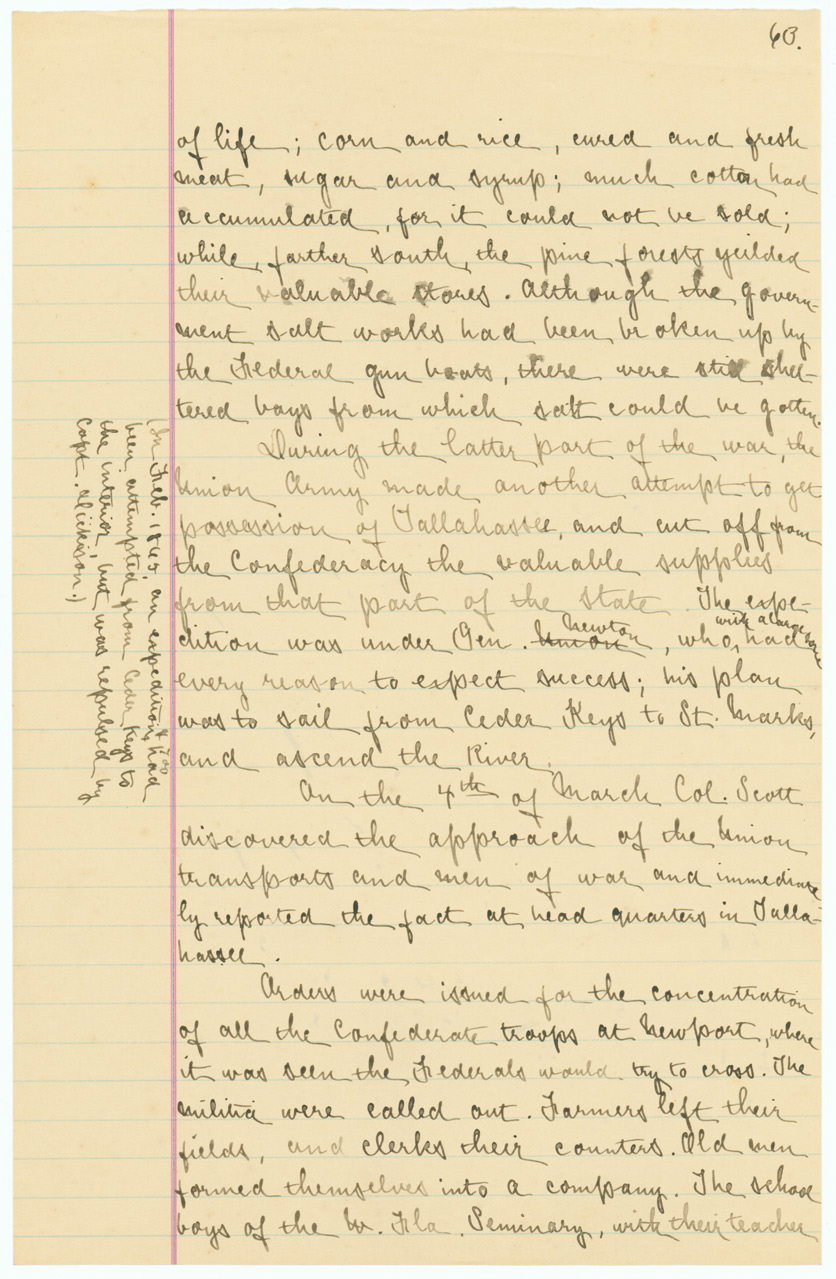 63.
of life; corn and rice, cured and fresh
meat, sugar and syrup; much cotton had
accumulated, for it could not be sold;
while, farther south, the pine forests yeilded
their valuable stores. Although the govern-
ment salt works had been broken up by
the Federal gun boats, there were still shel-
tered bays from which salt could be gotten.
During the latter part of the war, the
Union Army made another attempt to get
possession of Tallahassee, and cut off from
the Confederacy the valuable supplies
from that part of the state. The expe-
dition was under Gen. Union Newton, who, with a large force had
every reason to expect success; his plan
was to sail from Ceder Keys to St. Marks,
and ascend the River.
On the 4th of March Col. Scott
discovered the approach of the Union
transports and men of war and immediate
ly reported the fact at head quarters in Talla-
hassee.
Orders were issued for the concentration
of all the Confederate troops at Newport, where
it was seen the Federals would try to cross. The
militia were called out. Farmers left their
fields, and clerks their counters. Old men
formed themselves into a company. The school
boys of the W. Fla. Seminary, with their teacher
(In Feb. 1865, an expedition had
been attempted from Ceder Keys to
the interior, but was repulsed by
Capt. Dickison.)